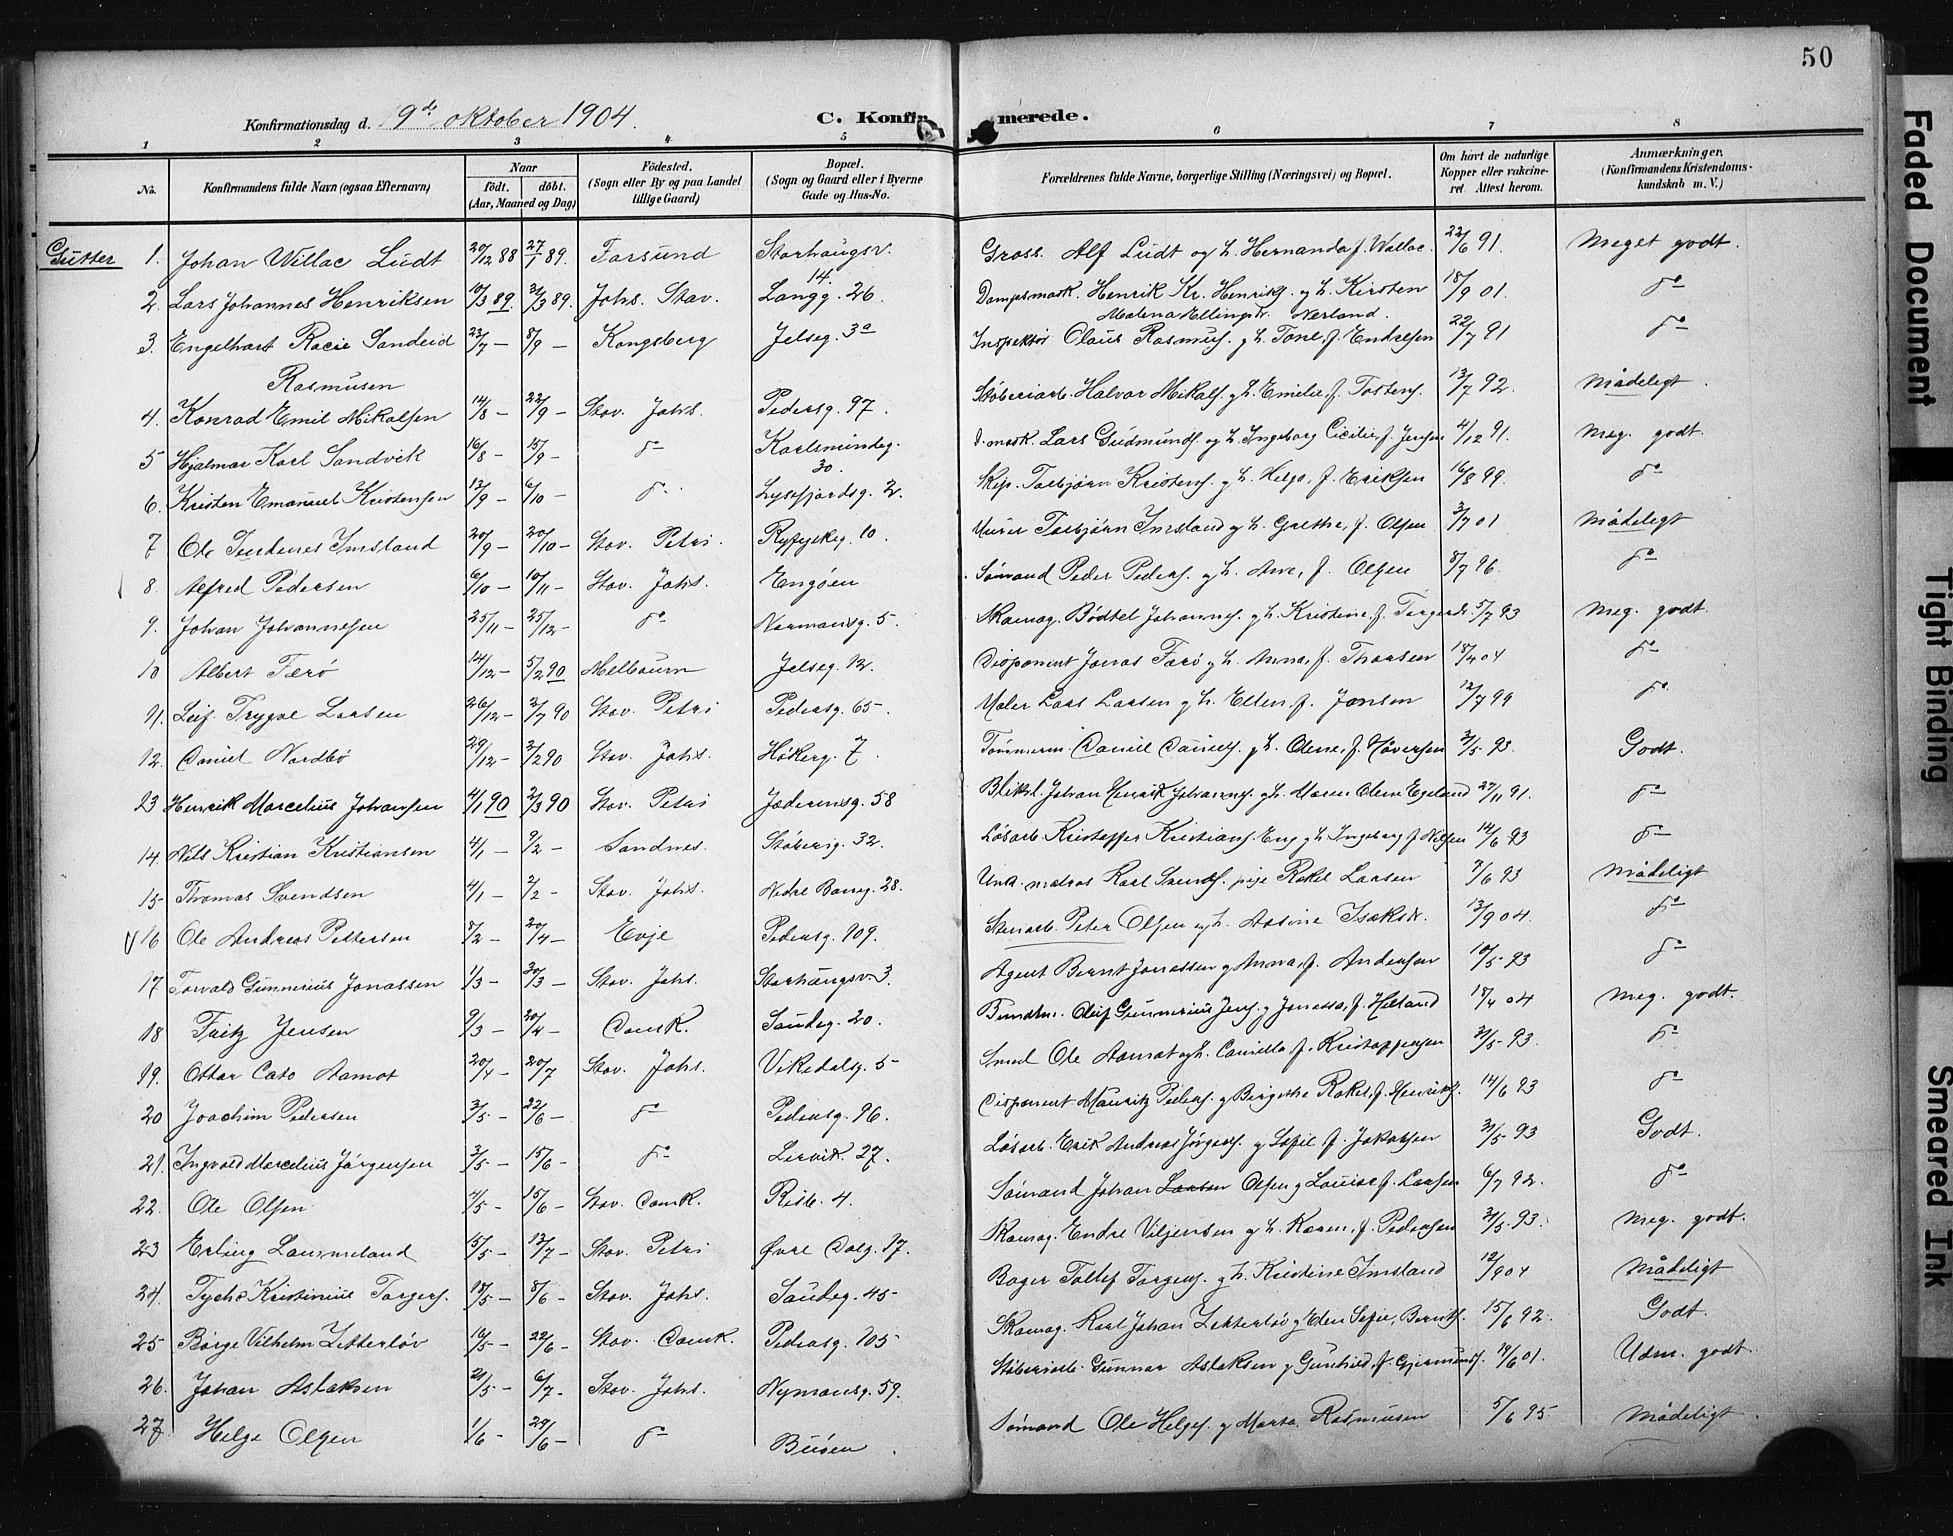 50
Konfirmationsdag d. 9de oktober 1904. C. Konfirmerede.
1 2 3 4 5 6 7 8
No. Konfirmandens fulde Navn (ogsaa Efternavn) Naar födt. döbt. (Aar, Maaned og Dag) Födested. (Sogn eller By og paa Landet tillige Gaard) Bopæl. (Sogn og Gaard eller i Byerne Gade og Hus-No. Forældrenes fulde Navne, borgerlige Stilling (Næringsvei) og Bopæl. Om havt de naturlige Kopper eller vakcineret. Attest herom. Anmærkninger. (Konfirmandens Kristendomskundskab m. V.)
Gutter 1. Johan Willac Lüdt 20/12 88 27/1 89. Farsund Storhaugsv. 14. Gross. Alf Lüdt og h. Hernanda f. Wallac. 22/6 91. Meget godt.
2. Lars Johannes Henriksen 10/3 89. 31/3 89. Johs. Stav. Langg. 26. Dampsmask. Henrik Kr. Henriks. og h. Kirsten Malena Ellingsdr. Nerland. 18/9 01. do
3. Engelhart Racie Sandeid Rasmusen 23/7 — 8/9 — Kongsberg Jelseg. 3a Inspektør Olaus Rasmus. g h. Tone, f. Endresen 22/7 91 do
4. Konrad Emil Mikalsen 14/8 — 22/9 — Stav. Johs. Pedersg. 97. Støberiarb. Halvor Mikals. g h. Emilie, f. Tostens. 13/7 92. Mådeligt.
5 Hjalmar Karl Sandvik 16/8 — 15/9 — do Karlsmindeg. 30. D. mask. Lars Gudmunds. og h. Ingeborg Cicilie, f. Jensen 4/12 91. Meg. godt.
6. Kristen Emanuel Kristensen 13/9 — 6/10 — do Lysefjordsg. 2. Skip. Torbjørn Kristens. g h. Helga, f. Eriksen 16/8 99. do
7 Ole Imsland 20/9 — 20/10 — Stav. Petri. Ryfylkeg. 10. Murer Torbjørn Imsland og h. Grethe, f. Olsen 3/7 01 Mådeligt
8. Alfred Pedersen 6/10 — 10/11 — Stav. Johs. Engøen Sømand Peder Peders. g h. Ane, f. Olsen 8/7 96. do
9. Johan Johannesen 25/11 — 25/12 — do Normansg. 5. Skomag. Bødtel Johannes. g h. Kristine, f. Torgersdr. 5/7 93 Meg. godt.
10 Albert Færø 14/12 — 5/2 90 Melbourn Jelseg. 12. Disponent Jonas Færø g h. Anna, f. Thorsen 18/4 04 do
11. Leif Trygve Larsen 26/12 — 2/7 90 Stav. Petri Pedersg. 65. Maler Lars Larsen g h. Ellen, f. Jonsen 12/7 99 do
12. Daniel Nordbø 29/12 — 2/2 90 Stav. Johs. Høkerg. 7. Tømmerm. Daniel Daniels. g h. Olene, f. Høversen 31/5 93. Godt.
13 Henrik Marcelius Johansen 4/1 90 2/3 90 Stav. Petri Jæderensg. 58 Blikksl. Johan Henrik Johannes. g h. Maren Olene Egeland 27/11 91. do
14. Nils Kristian Kristiansen 4/1 — 9/2 — Sandnes. Støberig. 32. Løsarb. Kristoffer Kristians. Eng g h. Ingeborg f. Nilsen 14/6 93 do
15 Thomas Svendsen 4/1 — 2/2 — Stav. Johs. Nedre Bang. 28. Unk. matros Karl Svends. pige Rakel Larsen 7/6 93 Mådeligt
V 16 Ole Andreas Pettersen 8/2 — 20/4 — Evje Pedersg. 109. Stenarb. Peter Olsen og h. Aasine Isaksdr. 13/9 04. do
17 Torvald Gunnerius Jonassen 1/3 — 30/3 — Stav. Johs. Storhaugsv. 3. Agent Bernt Jonassen g Anna, f. Andersen 10/5 93 do
18 Fritz Jensen 9/3 — 20/4 — Domk. Sandeg. 20. Bundtm. Oluf Gunnerius Jens. g Janessa, f. Helland 18/4 04 Meg. godt.
19. Ottar Cato Aamot 20/4 — 20/7 Stav. Johs. Vikedalsg. 5 Smed Ole Aamot og h. Camilla f. Kristoffersen 31/5 93. do
20 Joachim Pedersen 3/5 — 22/6 — do Pedersg. 96. Disponent Mauritz Peders. g Birgithe Rakel, f. Henriks. 14/6 93 do
21. Ingvald Marcelius Jörgensen 3/5 — 15/6 — do Lervik. 27. Løsarb. Erik Andreas Jörgens. g Sofie f. Jakobsen 31/5 93 Godt.
22. Ole Olsen 4/5 — 15/6 — Stav. Domk. Risb. 4. Sömand Johan Larsen Olsen g Louise f. Larsen 6/7 92. do
23 Erling Lammeland 15/5 — 13/7 — Stav. Petri Øvre Dalg. 17. Skomag. Endre Viljensen og h. Karen, f. Pedersen 31/5 93. Meg. godt.
24. Tycho Kristinius Torgers. 18/5 — 8/6 — Stav. Johs. Sandeg. 45 Bager Tollef Torgers. g h. Kristine Imsland 12/9 04 Mådeligt
25 Börge Vilhelm Zetterlöv 16/5 — 22/6 — Stav. Domk. Pedersg. 105 Skomag. Karl Johan Zetterlöv g Elen Sofie, Bernts. 15/6 92. Godt.
26. Johan Aslaksen 21/5 — 6/7 — Stav. Johs. Nymansg. 59. Støberiarb. Gunnar Aslaksen g Gunhild, f. Gjermunds. 19/6 01. Udm. godt
27 Helge Olsen 1/6 — 29/6 — do Buöen. Sömand Ole Helges. g Marta Rasmusen 5/6 95 Mådeligt.
Faded Document
Tight Binding
Smeared Ink